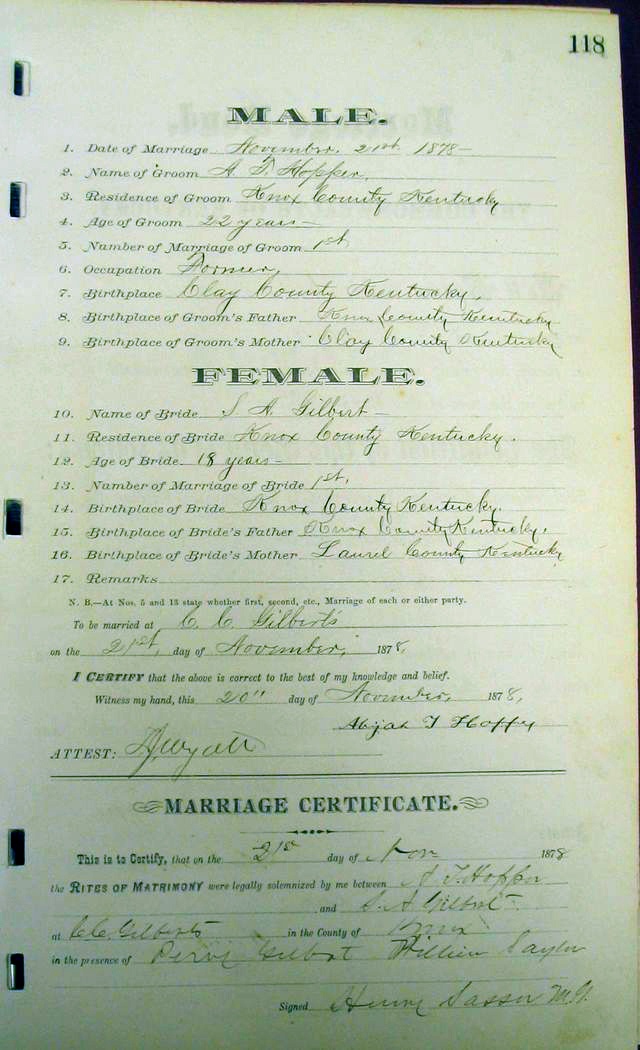 118
MALE.
1. Date of Marriage November. 21st 1878
2. Name of Groom A T Hopper,
3. Residence of Groom Knox County Kentucky
4. Age of Groom 22 years
5. Number of Marriage of Groom 1st
6. Occupation Farmer,
7. Birthplace Clay County Kentucky,
8. Birthplace of Groom's Father Knox County Kentucky
9. Birthplace of Groom's Mother Clay County Kentucky
FEMALE.
10. Name of Bride S A Gilbert
11. Residence of Bride Knox County Kentucky.
12. Age of Bride 18 years
13. Number of Marriage of Bride 1st.
14. Birthplace of Bride Knox County Kentucky.
15. Birthplace of Bride's Father Knox County Kentucky.
16. Birthplace of Bride's Mother Laurel County Kentucky
17. Remarks
N. B.—At Nos. 5 and 13 state whether first, second, etc., Marriage of each or either party.
To be married at C. C. Gilberts
on the 21st, day of November, 1878,
I CERTIFY that the above is correct to the best of my knowledge and belief.
Witness my hand, this 20" day of November, 1878,
Abijah T
ATTEST:
MARRIAGE CERTIFICATE.
This is to Certify, that on the 21st day of Nov 1878
the RITES OF MATRIMONY were legally solemnized by me between A. T. Hopper
and S. A Gilbert
at C C. Gilberts in the County of Knox
in the presence of Gilbert
Signed